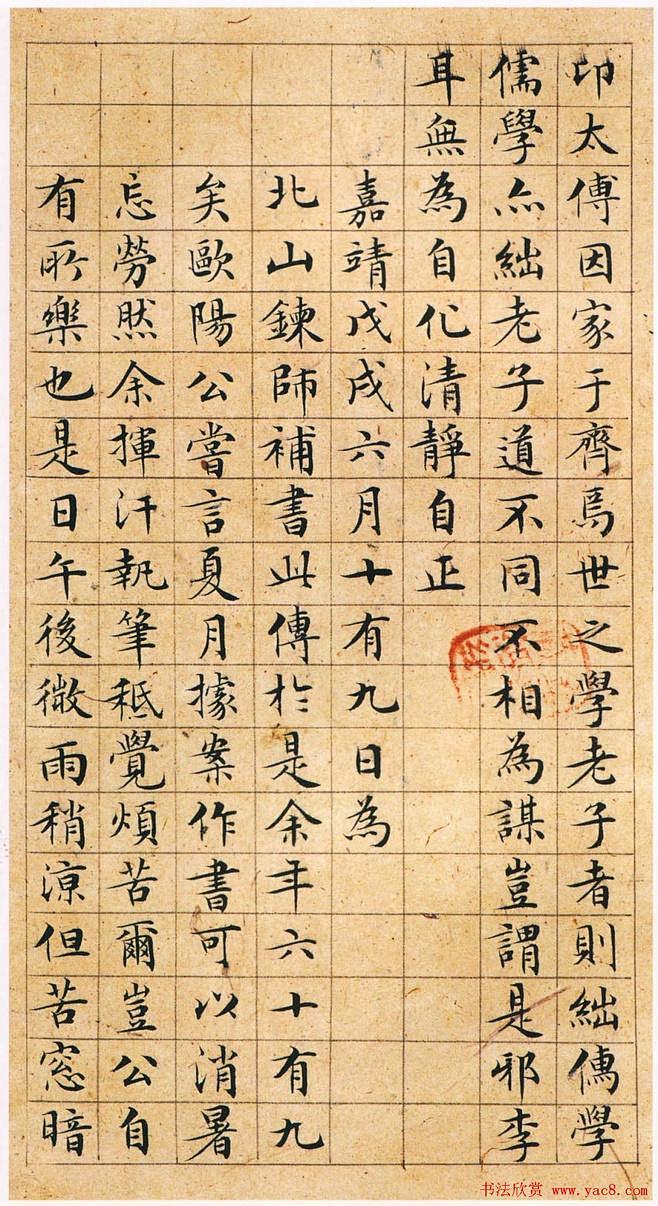 印太傅因家于齊焉世之學老子者則絀儒學
儒學亦絀老子道不同不相為謀豈謂是邪李
耳無為自化清靜自正
嘉靖戊戌六月十有九日為
北山鍊師補書此傳於是余年六十有九
矣歐陽公嘗言夏月據案作書可以消暑
忘勞然余揮汗執筆秪覺煩苦爾豈公自
有所樂也是日午後微雨稍涼但苦窓暗
书法欣赏 www.yac8.com